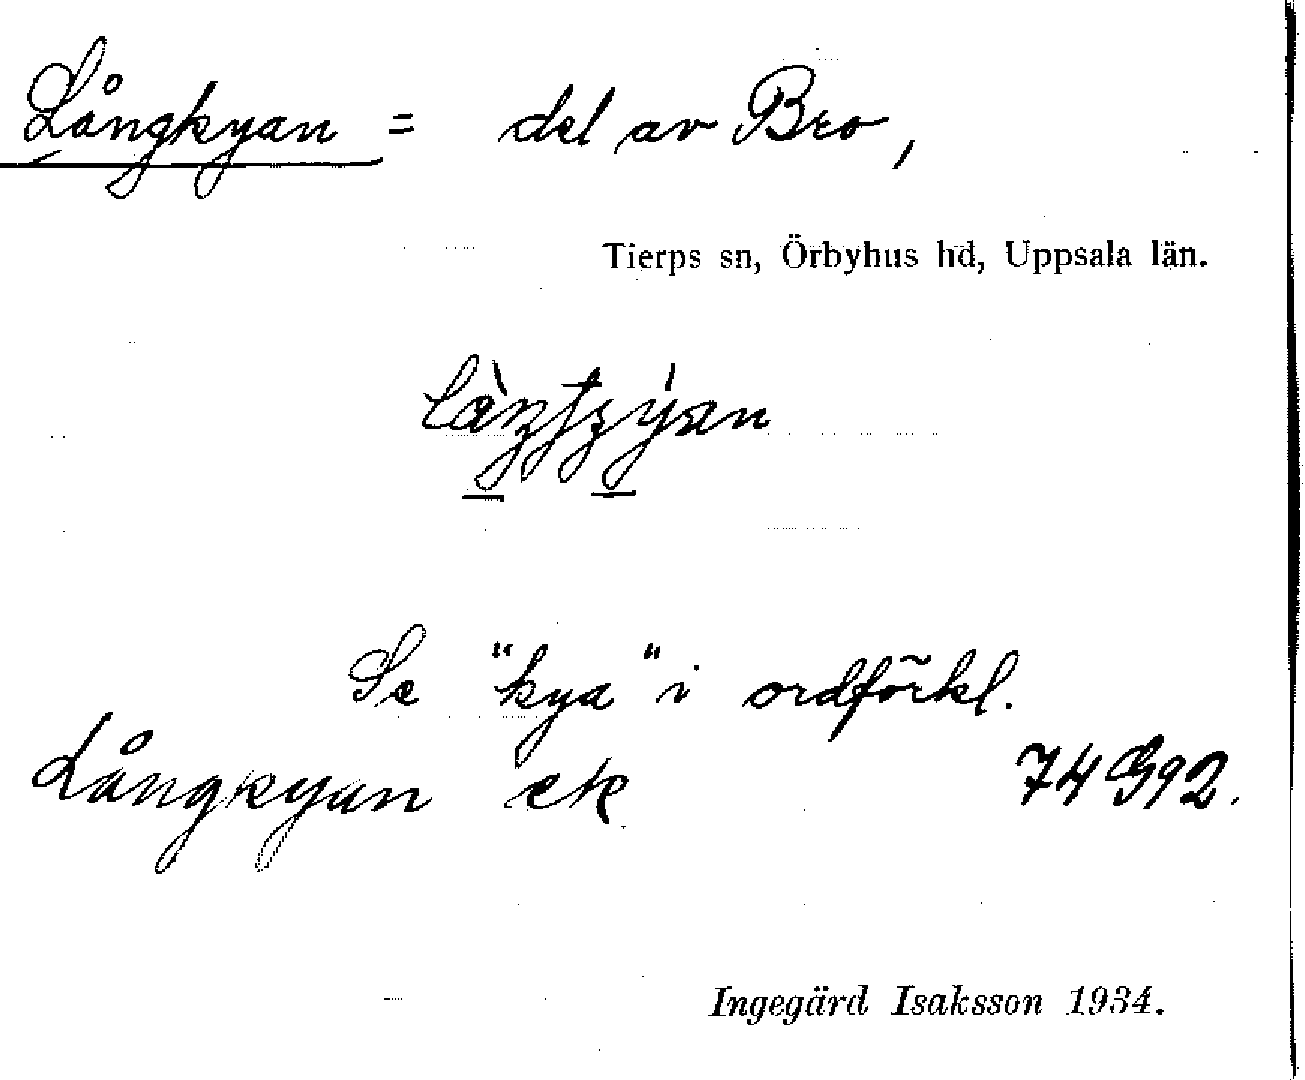 Långkyan = del av Bro,
Tierps sn, Örbyhus hd, Uppsala län.
Se "kya" i ordförkl.
Långkyan ek 74 G92.
Ingegärd Isaksson 1934.